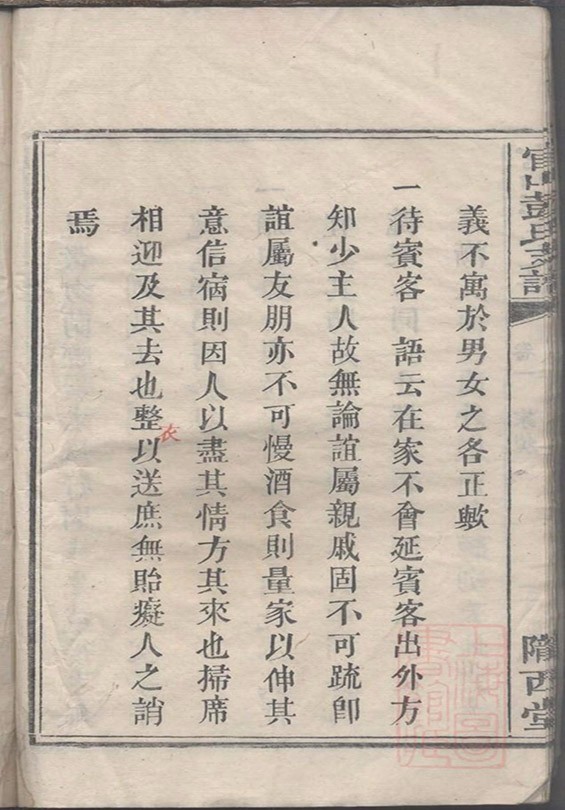 官山彭氏宗譜
隴西堂
義不寓於男女之各正歟
一待賓客 語云在家不會延賓客出外方
知少主人故無論誼屬親戚固不可疏卽
誼屬友朋亦不可慢酒食則量家以伸其
意信宿則因人以盡其情方其來也掃席
相迎及其去也整衣以送庶無貽癡人之誚
焉